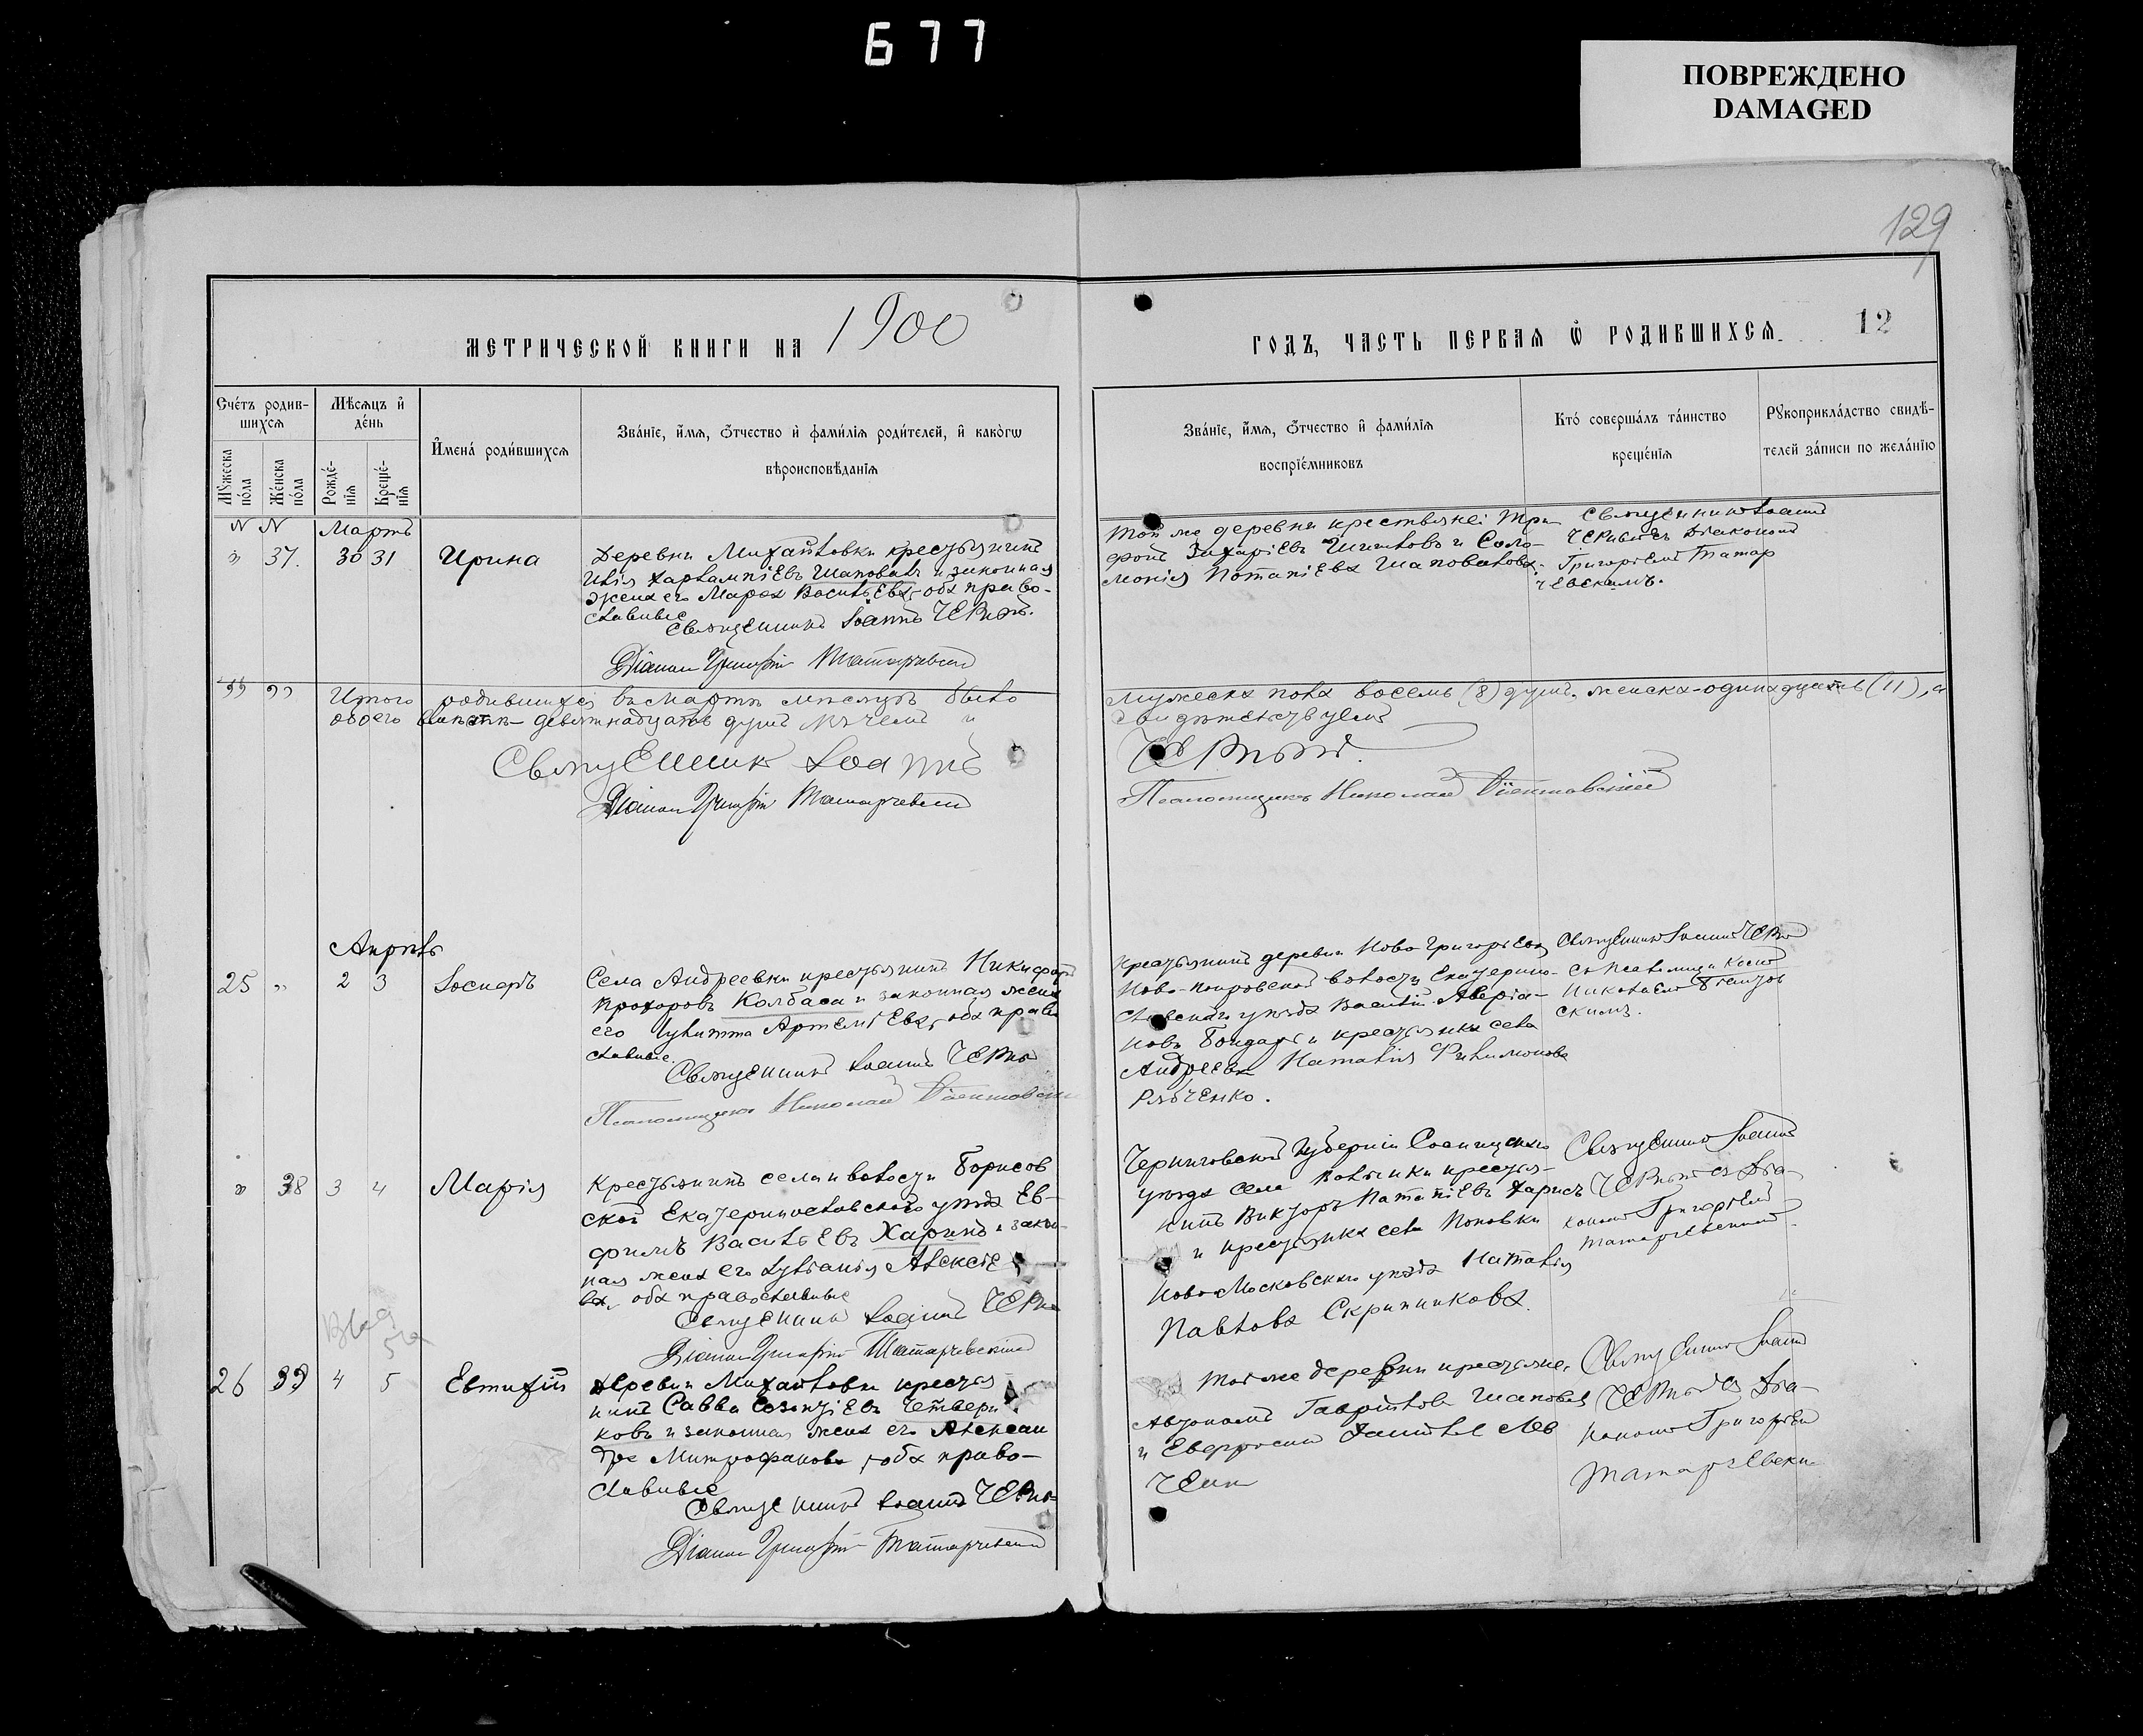 677
ПОВРЕЖДЕНО
DAMAGED
129
МЕТРИЧЕСКОЙ КНИГИ НА 1900
ГОДЪ, ЧАСТЬ ПЕРВАЯ Ѿ РОДИВШИХСЯ.
12
Счéтъ родив-
шихсѧ
Мꙋжеска пóла
Жéнска пóла
Мѣсѧцъ и҆ дéнь
Рождé-
нїѧ
Креще́-
нїѧ
И҆мена̀ роди́вшихсѧ
Зва́нїе, и҆́мѧ, ѻ҆́тчество и҆ фами́лїѧ роди́телей, и҆ како́гѡ
вѣроисповѣ́данїѧ
Зва́нїе, и҆́мѧ, ѻ҆́тчество и҆ фами́лїѧ
воспрїе́мниковъ
Кто́ соверша́лъ та́инство
креще́нїѧ
Рꙋкоприкла́дство свидѣ́-
телей за́писи по жела́нїю
N N Мартъ
" 37. 30 31 Ирина
Деревни Михайловки крестьянинъ
Илія Харлампіевъ Шаповалъ и законная
жена его Марѳа Васильева, оба право-
славные
Священникъ Іоаннъ Черный.
Діаконъ Григорій Татарчевскій
Той же деревни крестьяне: Три-
фонъ Захаріевъ Шишковъ и Соло-
монія Потапіева Шаповалова.
Священникъ Іоаннъ
Черный съ Діакономъ
Григоріемъ Татар
чевскимъ.
" " Итого родившихся въ Мартѣ мѣсяцѣ было
мужеска пола восемь (8) душъ, женска-одинадцать (11), а
обоего девятнадцать душъ въ чемъ и
свидѣтельствуемъ
Священникъ Іоаннъ
Черный.
Діаконъ Григорій Татарчевскій
Псаломщикъ Николай
Апрѣль
25 " 2 3 Іосифъ
Села Андреевки крестьянинъ Никифоръ
Прохоровъ Колбаса и законная жена
его Іулитта Артеміева, оба право
славные.
Священникъ Іоаннъ Черный
Псаломщикъ Николай
Крестьянинъ деревни Ново Григорьевки
Ново-Покровской волости Екатерино-
славскаго уѣзда Василій Аверіа-
новъ Бондарь и крестьянка села
Андреевки Наталія Филимонова
Рябченко.
Священникъ Іоаннъ Черный
съ Псаломщикомъ
Николаемъ
скимъ.
" 38 3 4 Марія
Крестьянинъ села и волости Борисов
ской Екатеринославскаго уѣзда Ев-
фимъ Васильевъ Харинъ и закон-
ная жена его Алексіе
ва, оба православные
Священникъ Іоаннъ Черный
Діаконъ Григорій Татарчевскій
Черниговской Губерніи Сосницкаго
уѣзда села Волынки крестья-
нинъ Викторъ Потапіевъ
и крестьянка села Поповки
Ново-Московскаго уѣзда Наталія
Павлова Скрипникова.
Священникъ Іоаннъ
Черный съ Діа-
кономъ Григоріемъ
Татарчевскимъ.
26 39 4 5 Евтихій
Деревни Михайловки крестья
нинъ Савва Четвери
ковъ и законная жена его Александ
ра Митрофанова, оба право-
славные
Священникъ Іоаннъ Черный
Діаконъ Григорій Татарчевскій
Той же деревни крестьяне:
Автономъ Гавріиловъ Шаповалъ
и Евфросинія Лев
ченко
Священникъ Іоаннъ
Черный съ Діа-
кономъ Григоріемъ
Татарчевскимъ